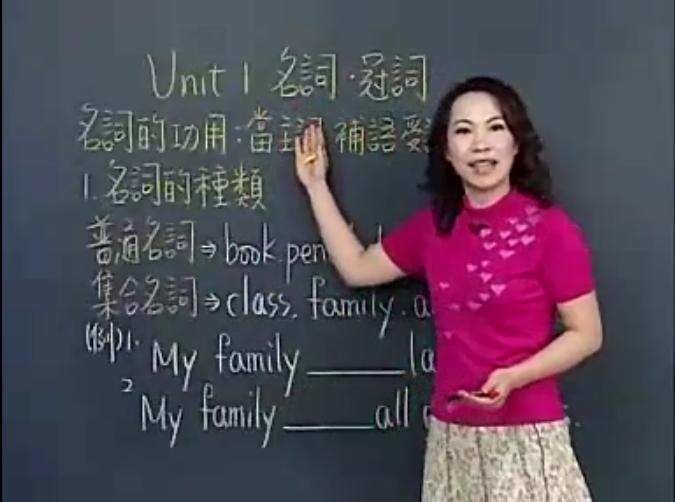 Unit 1 名詞．冠詞
名詞的功用：當主 補語受
1. 名詞的種類
普通名詞⇒book pen
集合名詞⇒class. family. a
(例)1. My family ______la
2 My family ______all